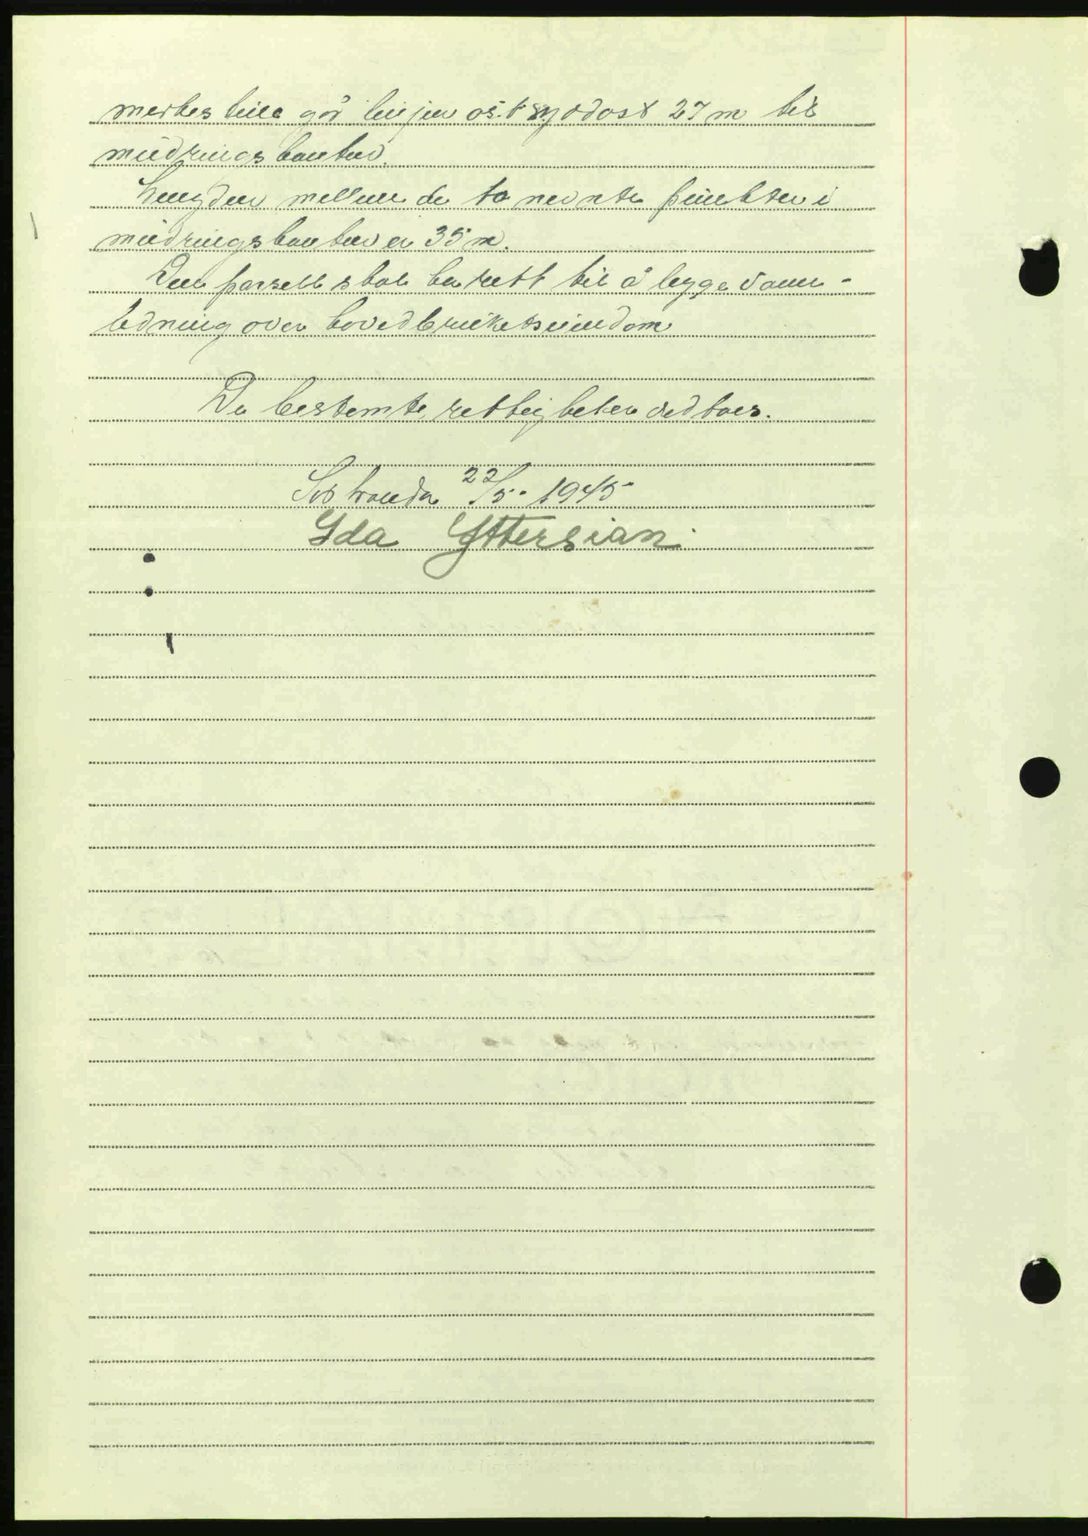 merkes teiec går linjen ost sydost 27 m til
midringskanten.
Lengden mellem de to nevnte punkter i
midringskanten er 35 m.
Den parsell skal ha rett til å legge vann-
ledning over hovedbrukets eiendom
De bestemte rettigheter vedtaes.
Solstranda 22/5 - 1945
Ida Yttersian.